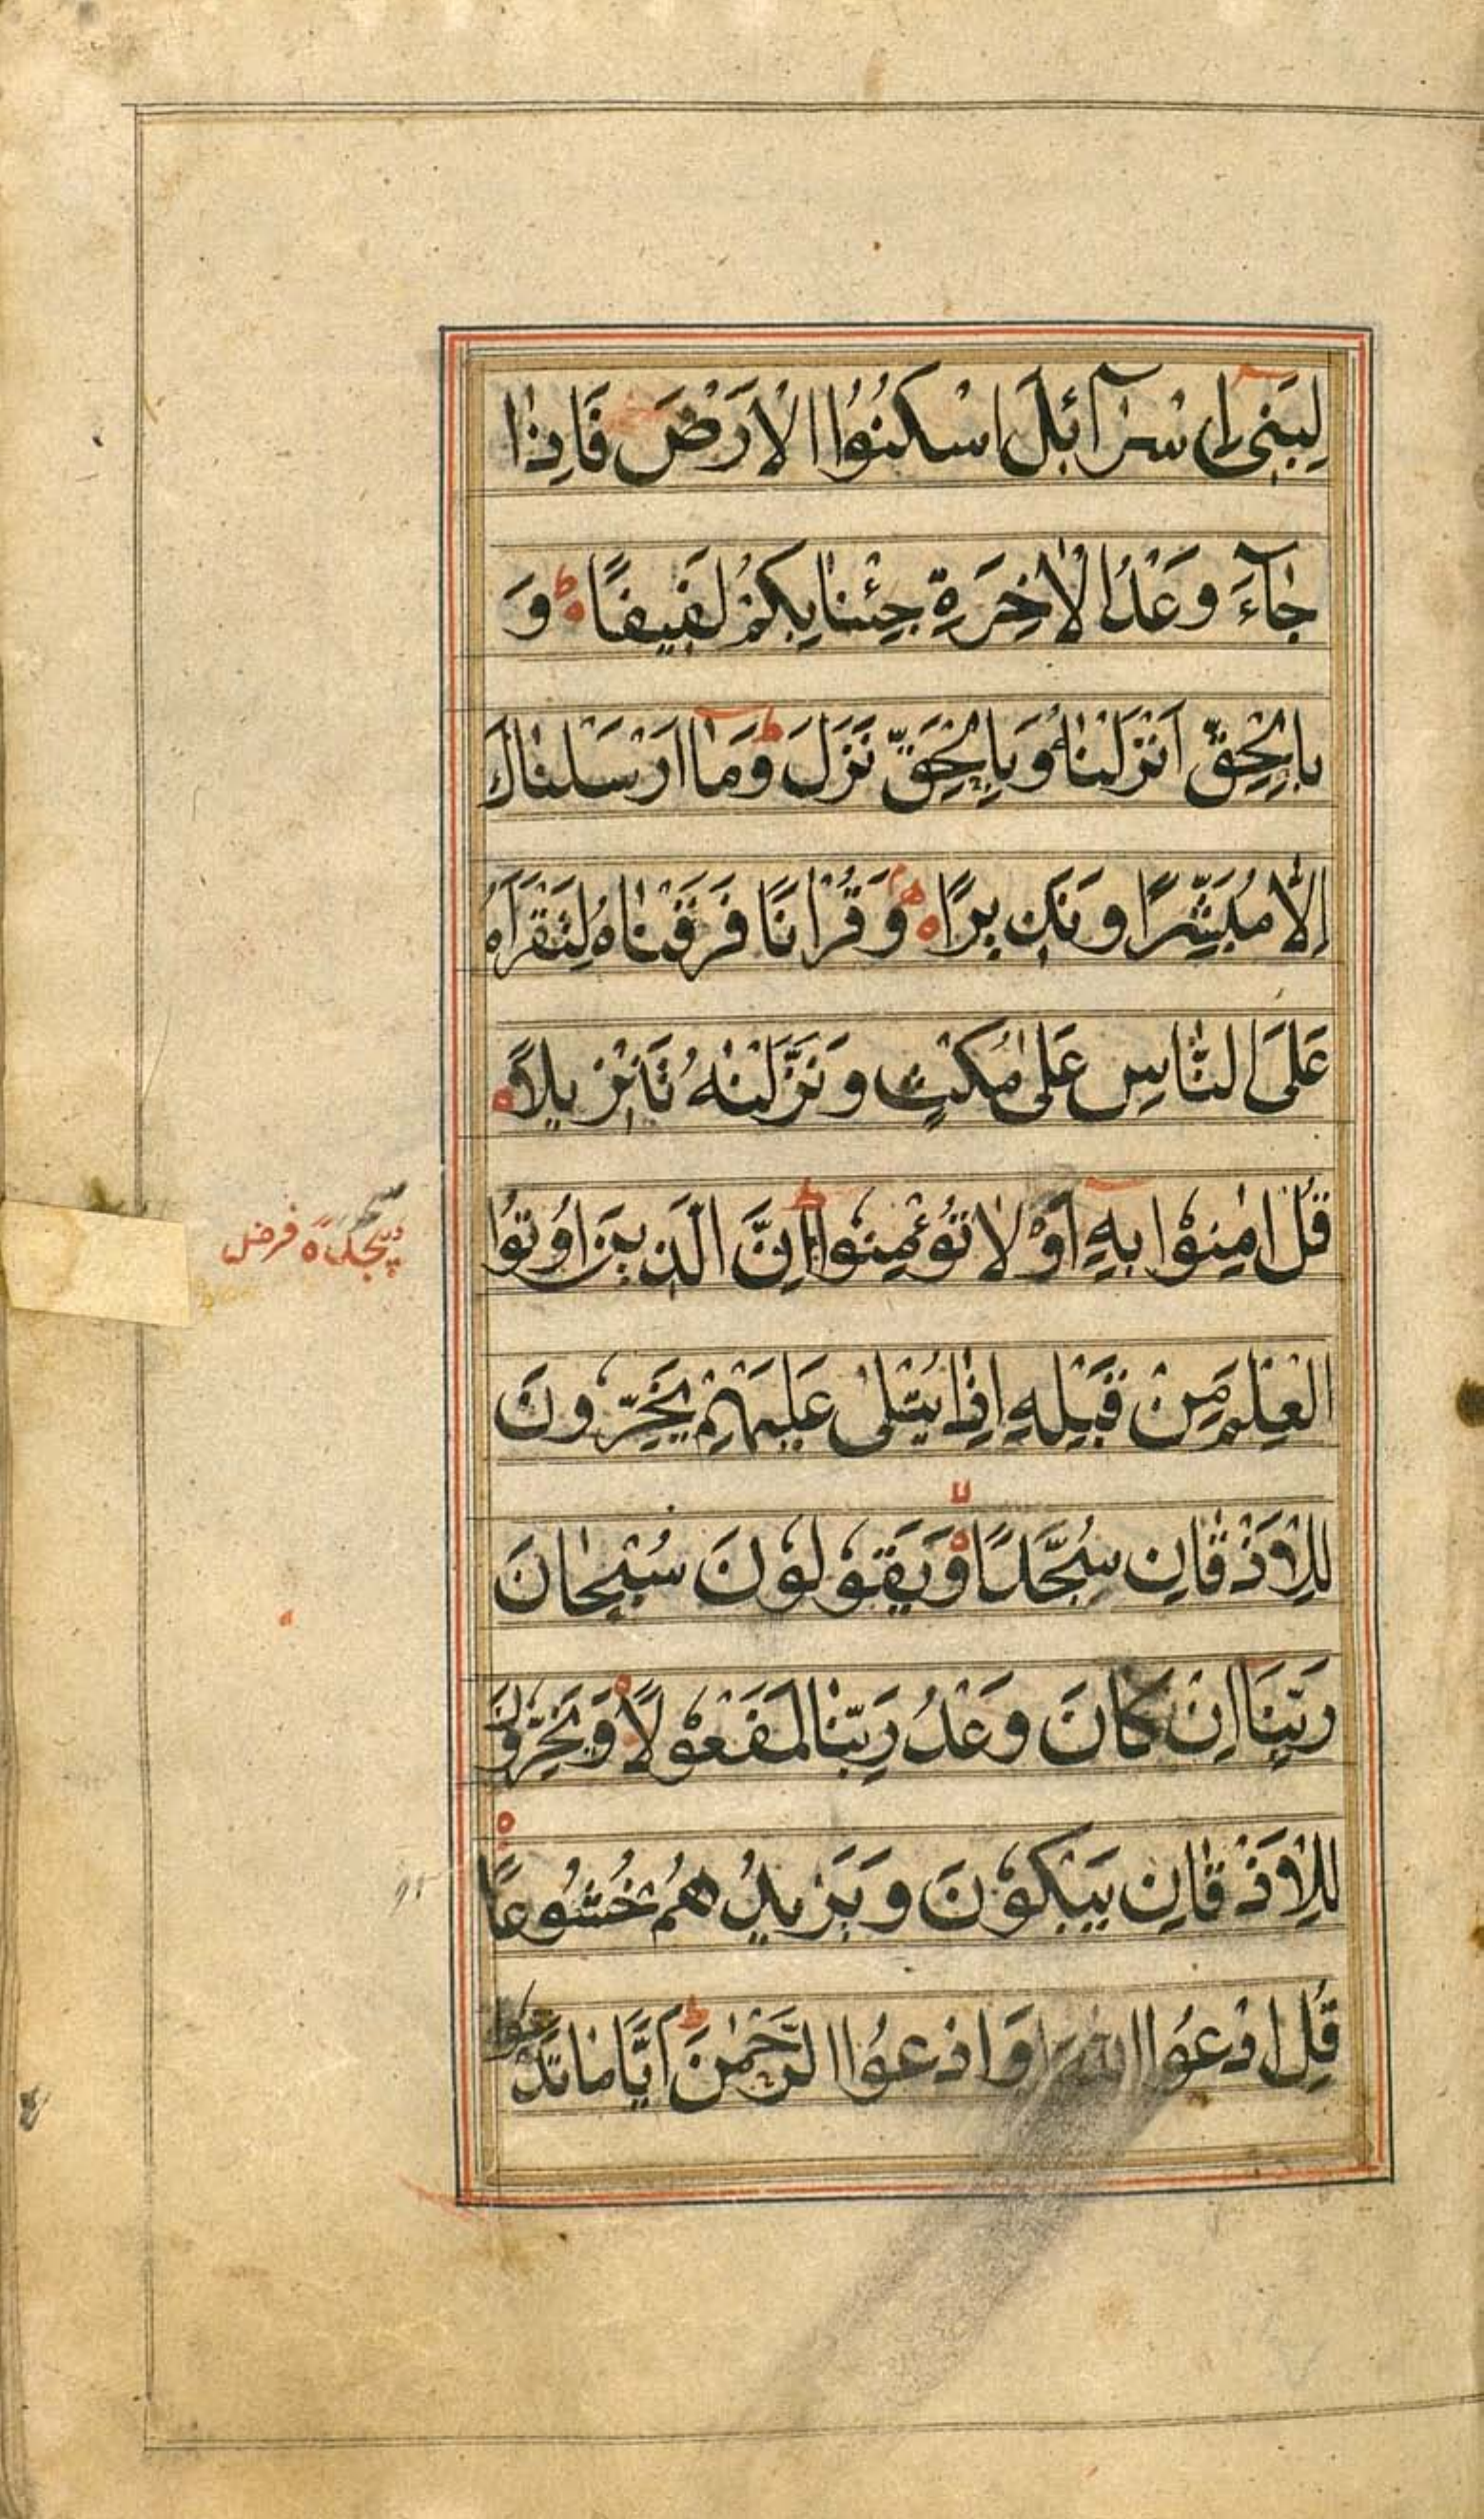 لِبَنِیْ اِسْرَآئِلَ اسْکُنُوا الْاَرْضَ فَاِذَا
جَآءَ وَعْدُ الْاٰخِرَةِ جِئْنَا بِکُمْ لَفِیْفًا ط وَ
بِالْحَقِّ اَنْزَلْنَاهُ وَبِالْحَقِّ نَزَلَ ط وَمَا اَرْسَلْنَاكَ
اِلَّا مُبَشِّرًا وَنَذِیْرًا م وَقُرْاٰنًا فَرَقْنَاهُ لِتَقْرَاَهُ
عَلَی النَّاسِ عَلٰی مُکْثٍ وَنَزَّلْنٰهُ تَنْزِیْلًا
قُلْ اٰمِنُوْا بِهٖ اَوْ لَا تُؤْمِنُوْا ط اِنَّ الَّذِیْنَ اُوْتُوا
الْعِلْمَ مِنْ قَبْلِهٖ اِذَا یُتْلٰی عَلَیْهِمْ یَخِرُّوْنَ
لِلْاَذْقَانِ سُجَّدًا لا وَیَقُوْلُوْنَ سُبْحَانَ
رَبِّنَا اِنْ کَانَ وَعْدُ رَبِّنَا لَمَفْعُوْلًا وَیَخِرُّوْنَ
لِلْاَذْقَانِ یَبْکُوْنَ وَیَزِیْدُهُمْ خُشُوْعًا
قُلِ ادْعُوا اللّٰهَ اَوِ ادْعُوا الرَّحْمٰنَ ط اَیًّا مَا تَدْعُوا
سجده فرض